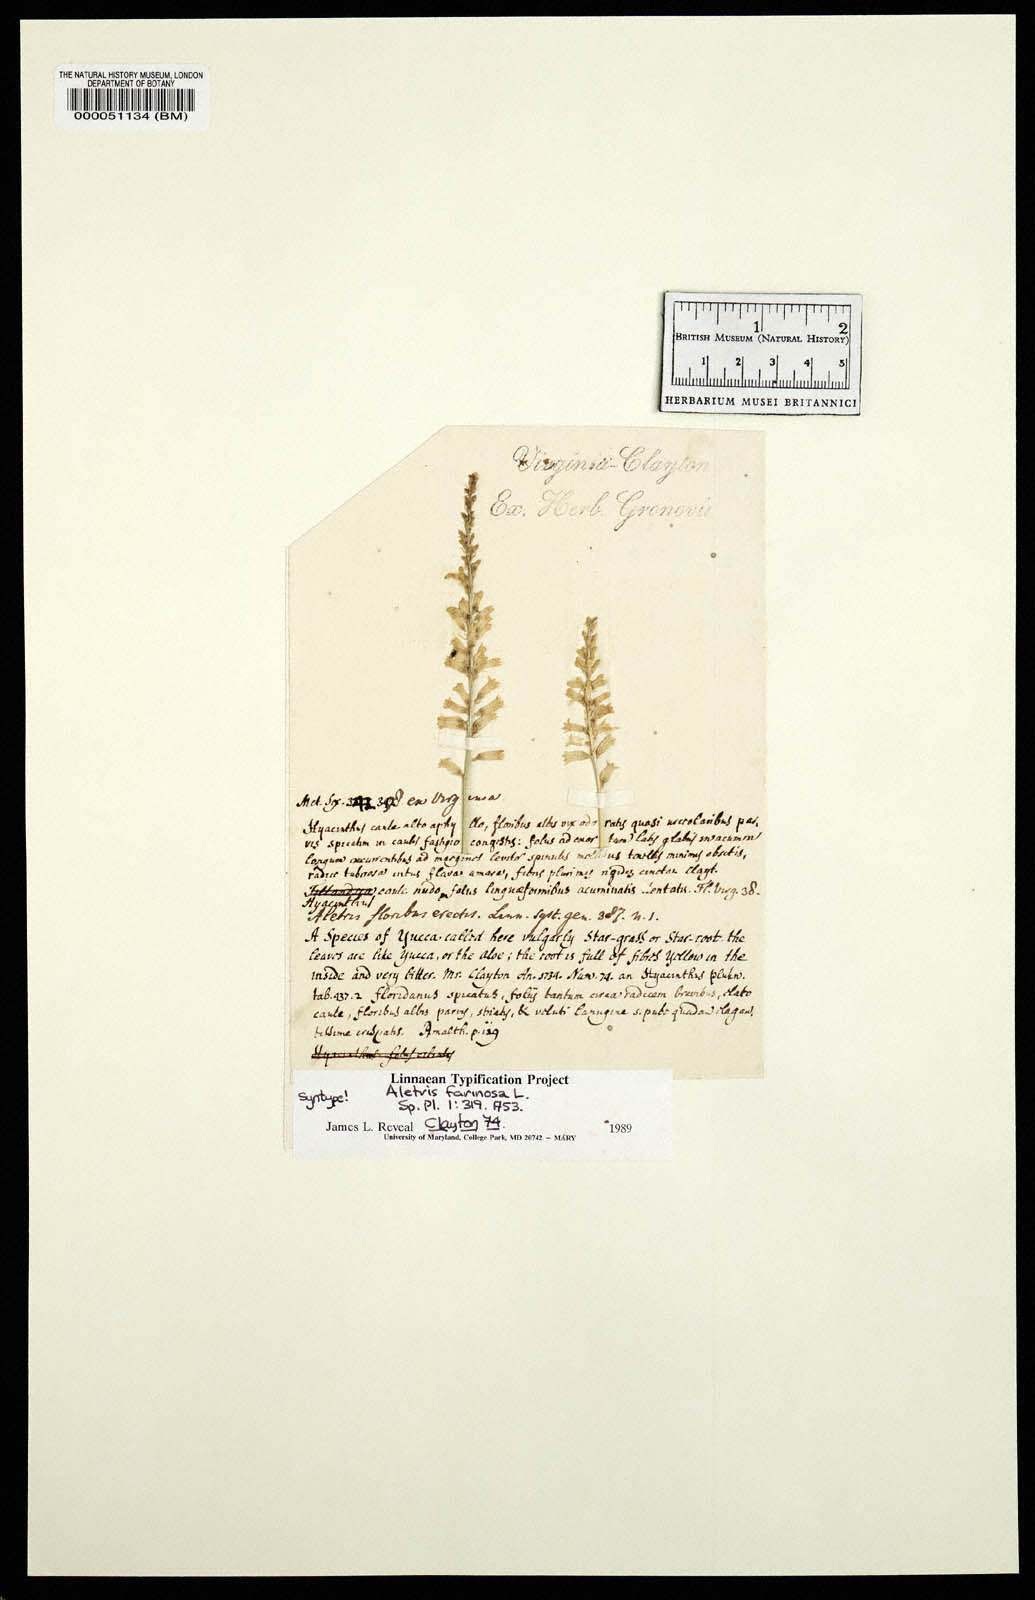 THE NATURAL HISTORY MUSEUM, LONDON
DEPARTMENT OF BOTANY
000051134 (BM)
1 2
BRITISH MUSEUM (NATURAL HISTORY)
1 2 3 4 5
HERBARIUM MUSEI BRITANNICI
Virginia-Clayton
Ex. Herb. Gronovii
Hyacinthus caule alto aphyllo, floribus albis vix odoratis quasi urceolaribus par,
vis spicatim in caulis fastigio congestis: foliis ad exortum latis glabris in acumen
longum excurrentibus ad margines leviter spinulis mollibus tenellis minimis obsitis,
radice tuberosa intus flava amara, fibris plurimis rigidis cincta. Clayt.
caule nudo, foliis linguaeformibus acuminatis dentatis. Fl. Virg. 38.
Hyacinthus
Aletris floribus erectis. Linn. Syst. gen. 387. n. 1.
A Species of Yucca called here vulgarly Star-grass or Star-root the
leaves are like Yucca, or the aloe; the root is full of fibres yellow in the
inside and very bitter. Mr. Clayton An. 1734. Num. 74. an Hyacinthus Plukn.
tab. 437. 2 floridanus spicatus, foliis tantum circa radicem brevibus, elato
caule, floribus albis parvis, striatis, & veluti lanugine s. pube quadam elegan,
tissime crispatis. Amalth. p. 119
Hyacinthus foliis
Linnaean Typification Project
Syntype! Aletris farinosa L.
Sp. Pl. 1:319. 1753.
James L. Reveal Clayton 74. 1989
University of Maryland, College Park, MD 20742 – MARY